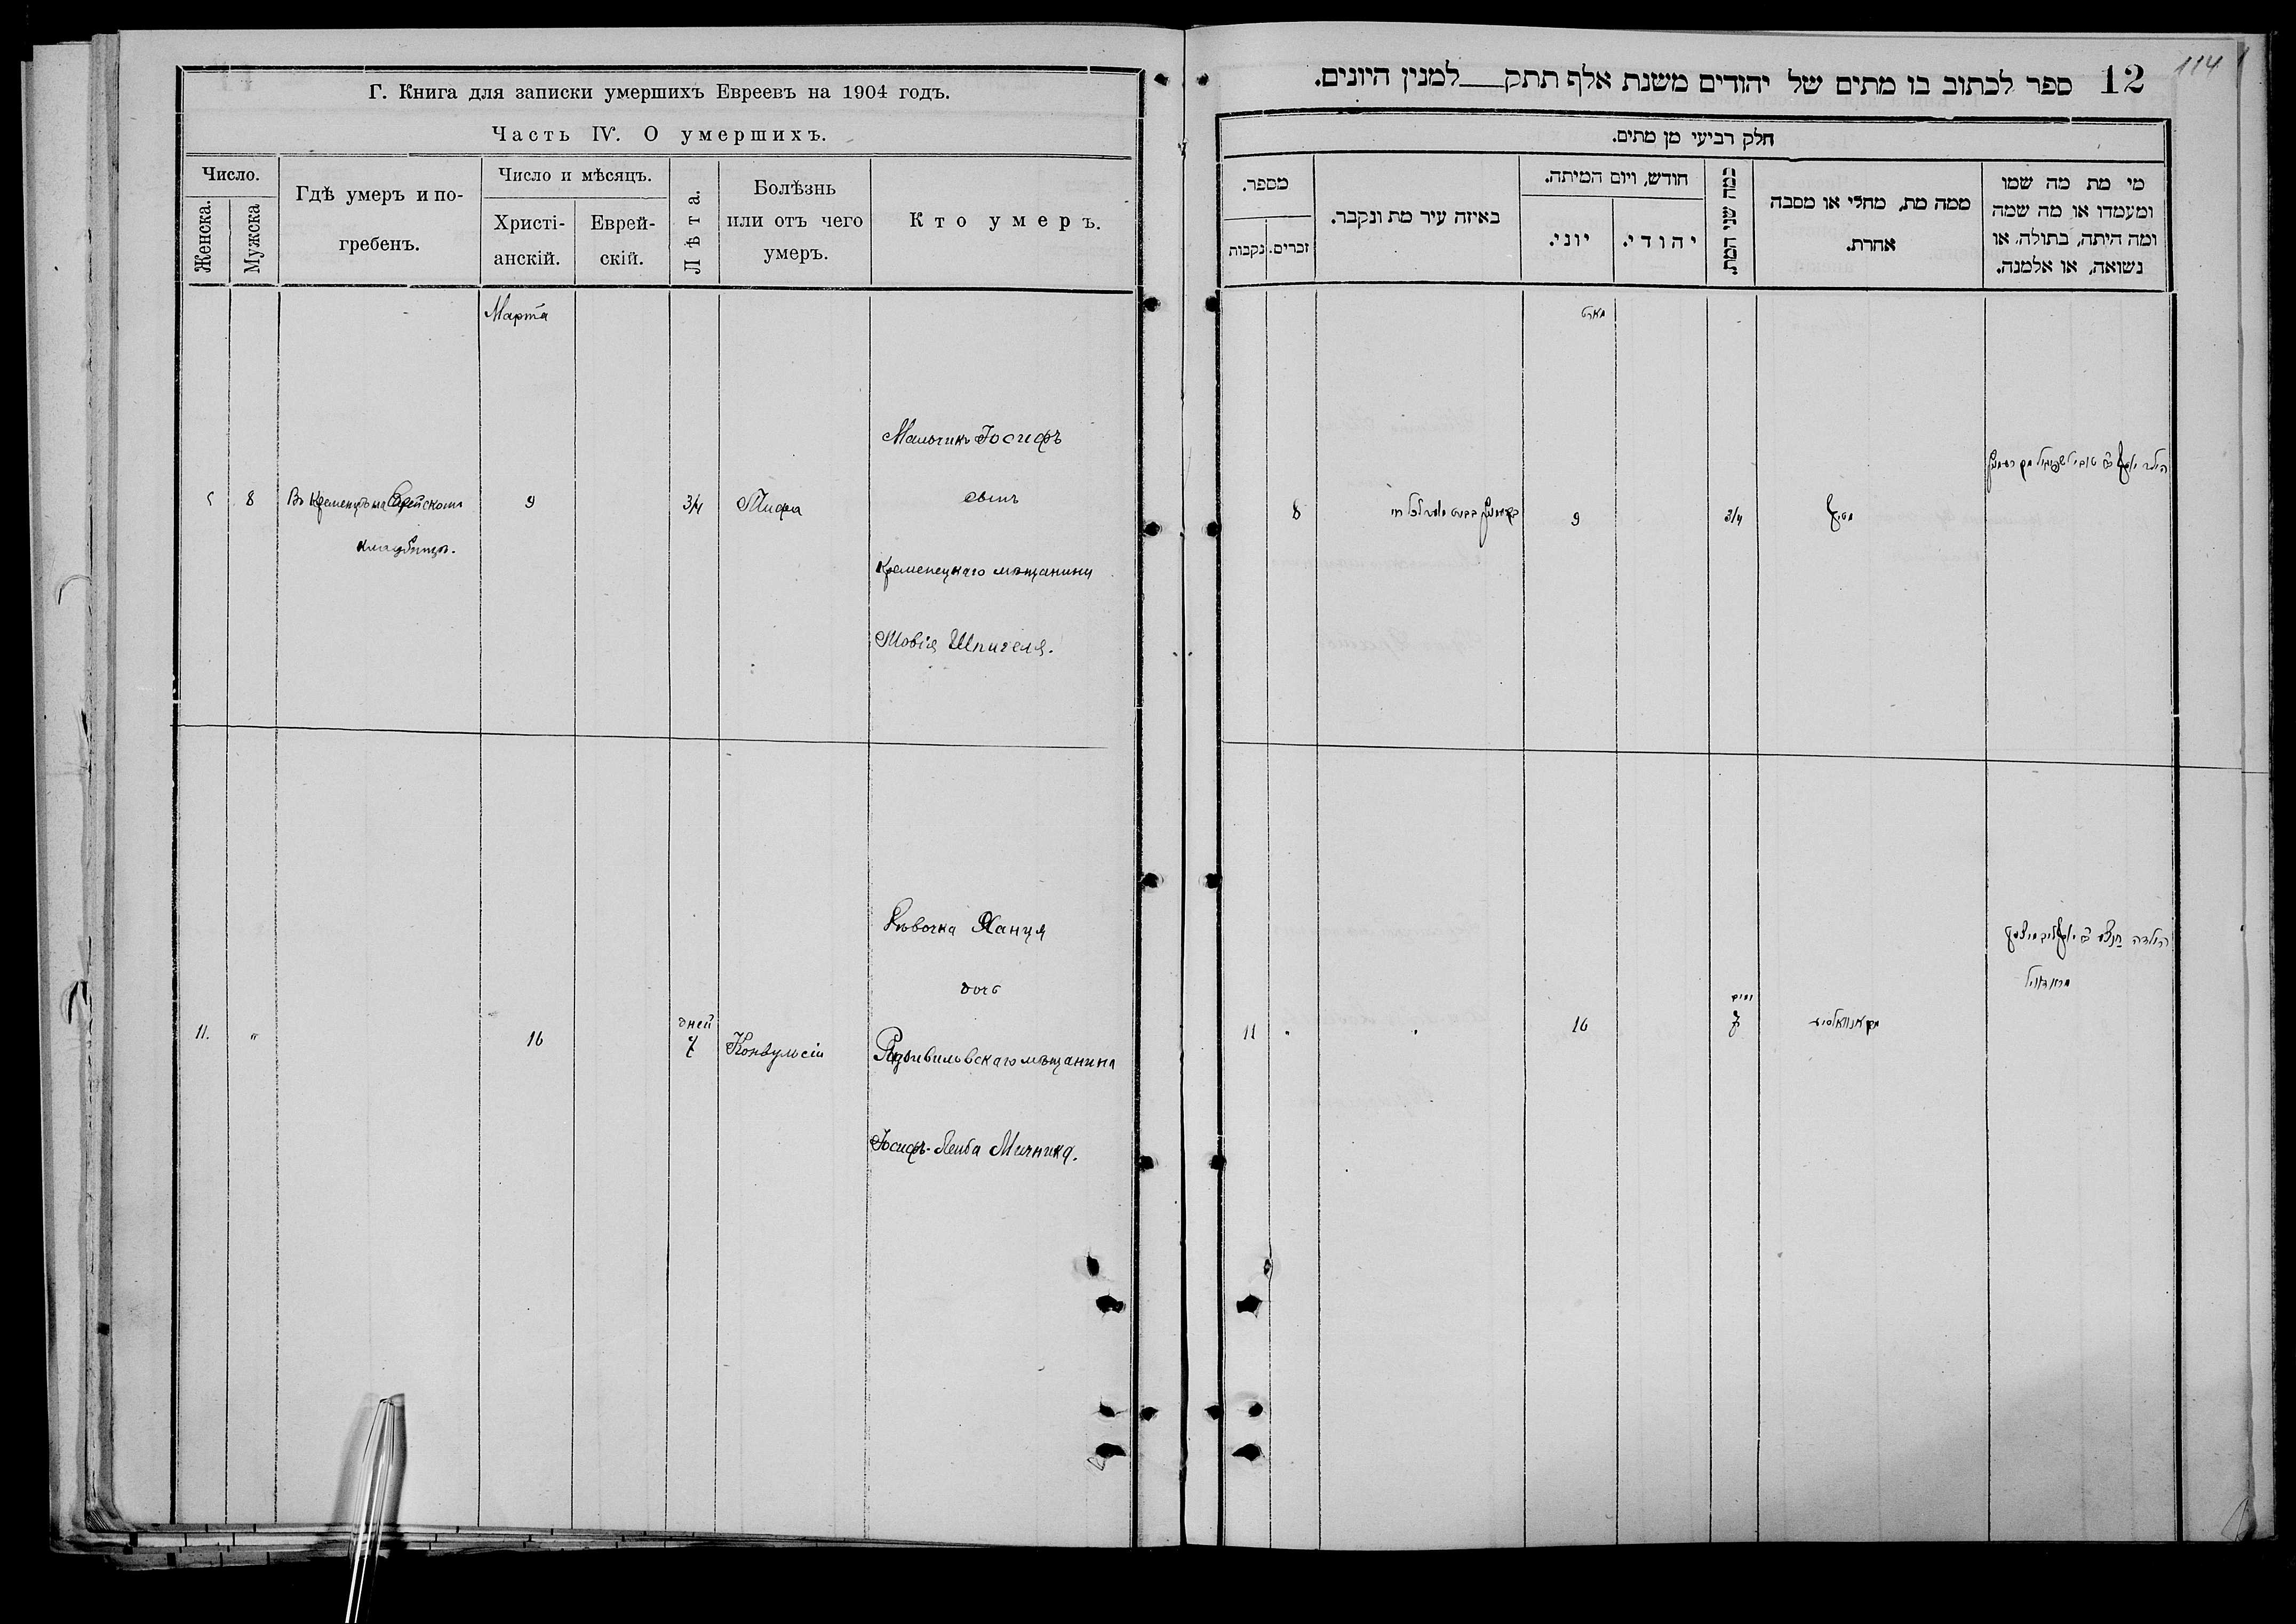 Г. Книга для записки умершихъ Евреевъ на 1904 годъ.
Часть IV. О умершихъ.
Число.
Женска.
Мужска
Гдѣ умеръ и по-
гребенъ.
Число и мѣсяцъ.
Христі-
анскій.
Еврей-
скій.
Лѣта.
Болѣзнь
или отъ чего
умеръ.
Кто умеръ.
Марта
8
Въ Кременцѣ на Еврейскомъ
кладбищѣ.
9
3/4
Тифа
Мальчикъ Іосифъ
сынъ
Кременецкаго мѣщанина
Товія Шпигеля.
11.
"
16
дней
7
Конвульсіи
Дѣвочка Ханця
дочь
Радзивиловскаго мѣщанина
Іосифъ-Лейба Мичника.
114
12 ספר לכתוב בו מתים של יהודים משנת אלף תתק למנין היונים.
חלק רביעי מן מתים.
מספר.
נקבות
זכרים.
באיזה עיר מת ונקבר.
חודש, ויום המיתה.
יוני.
יהודי.
כמה שני המת.
ממה מת, מחלי או מסבה
אחרת.
מי מת מה שמו
ומעמדו או מה שמה
ומה היתה, בתולה, או
נשואה, או אלמנה.
מארט
8
9
3/4
טיף
הילד יוסף
11
"
"
16
ימים
7
הילדה חנצי